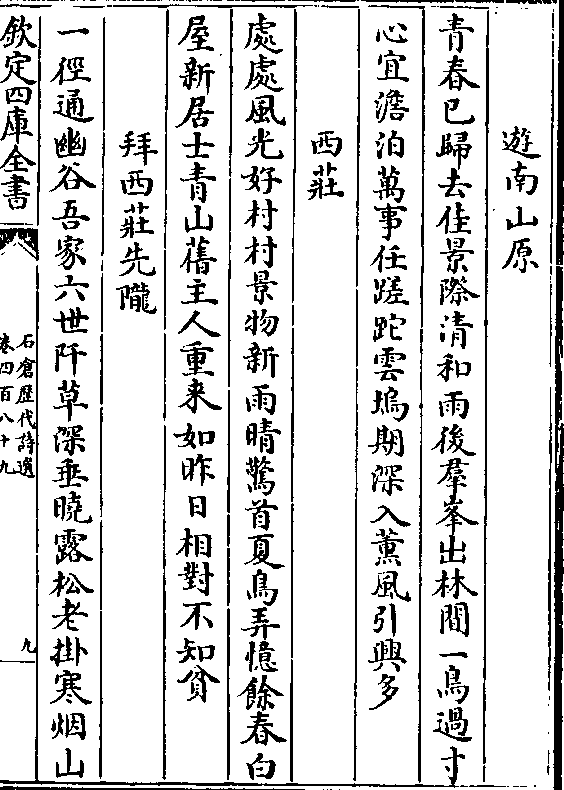 遊南山原
青春已歸去佳景際清和雨後羣峯出林間一鳥過寸
心宜澹泊萬事任蹉跎雲塢期深入薰風引興多
西莊
處處風光好村村景物新雨晴驚首夏鳥弄憶餘春白
屋新居士青山舊主人重来如昨日相對不知貧
拜西莊先隴
一徑通幽谷吾家六世阡草深垂曉露松老掛寒烟山
欽定四庫全書
石倉歷代詩選
卷四百八十九
九